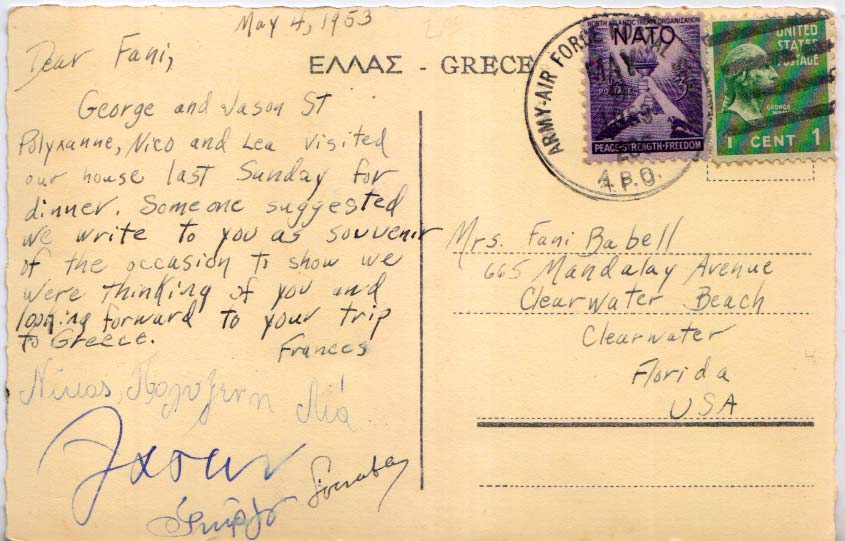 May 4, 1953
Dear Fani,
George and Jason St
Polyxanne, Nico and Lea visited
our house last Sunday for
dinner. Someone suggested
we write to you as souvenir
of the occasion to show we
were thinking of you and
looking forward to your trip
to Greece.
Frances
Νίκος, Πολυξένη Λιά
Ιάσων
Γιώργο
ΕΛΛΑΣ - GRECE
ARMY-AIR FORCE
MAY
A.P.O.
NORTH ATLANTIC TREATY ORGANIZATION
NATO
U.S. POSTAGE 3¢
PEACE·STRENGTH·FREEDOM
UNITED
STATES
POSTAGE
GEORGE
1 CENT 1
Mrs. Fani Babell
665 Mandalay Avenue
Clearwater Beach
Clearwater
Florida
USA